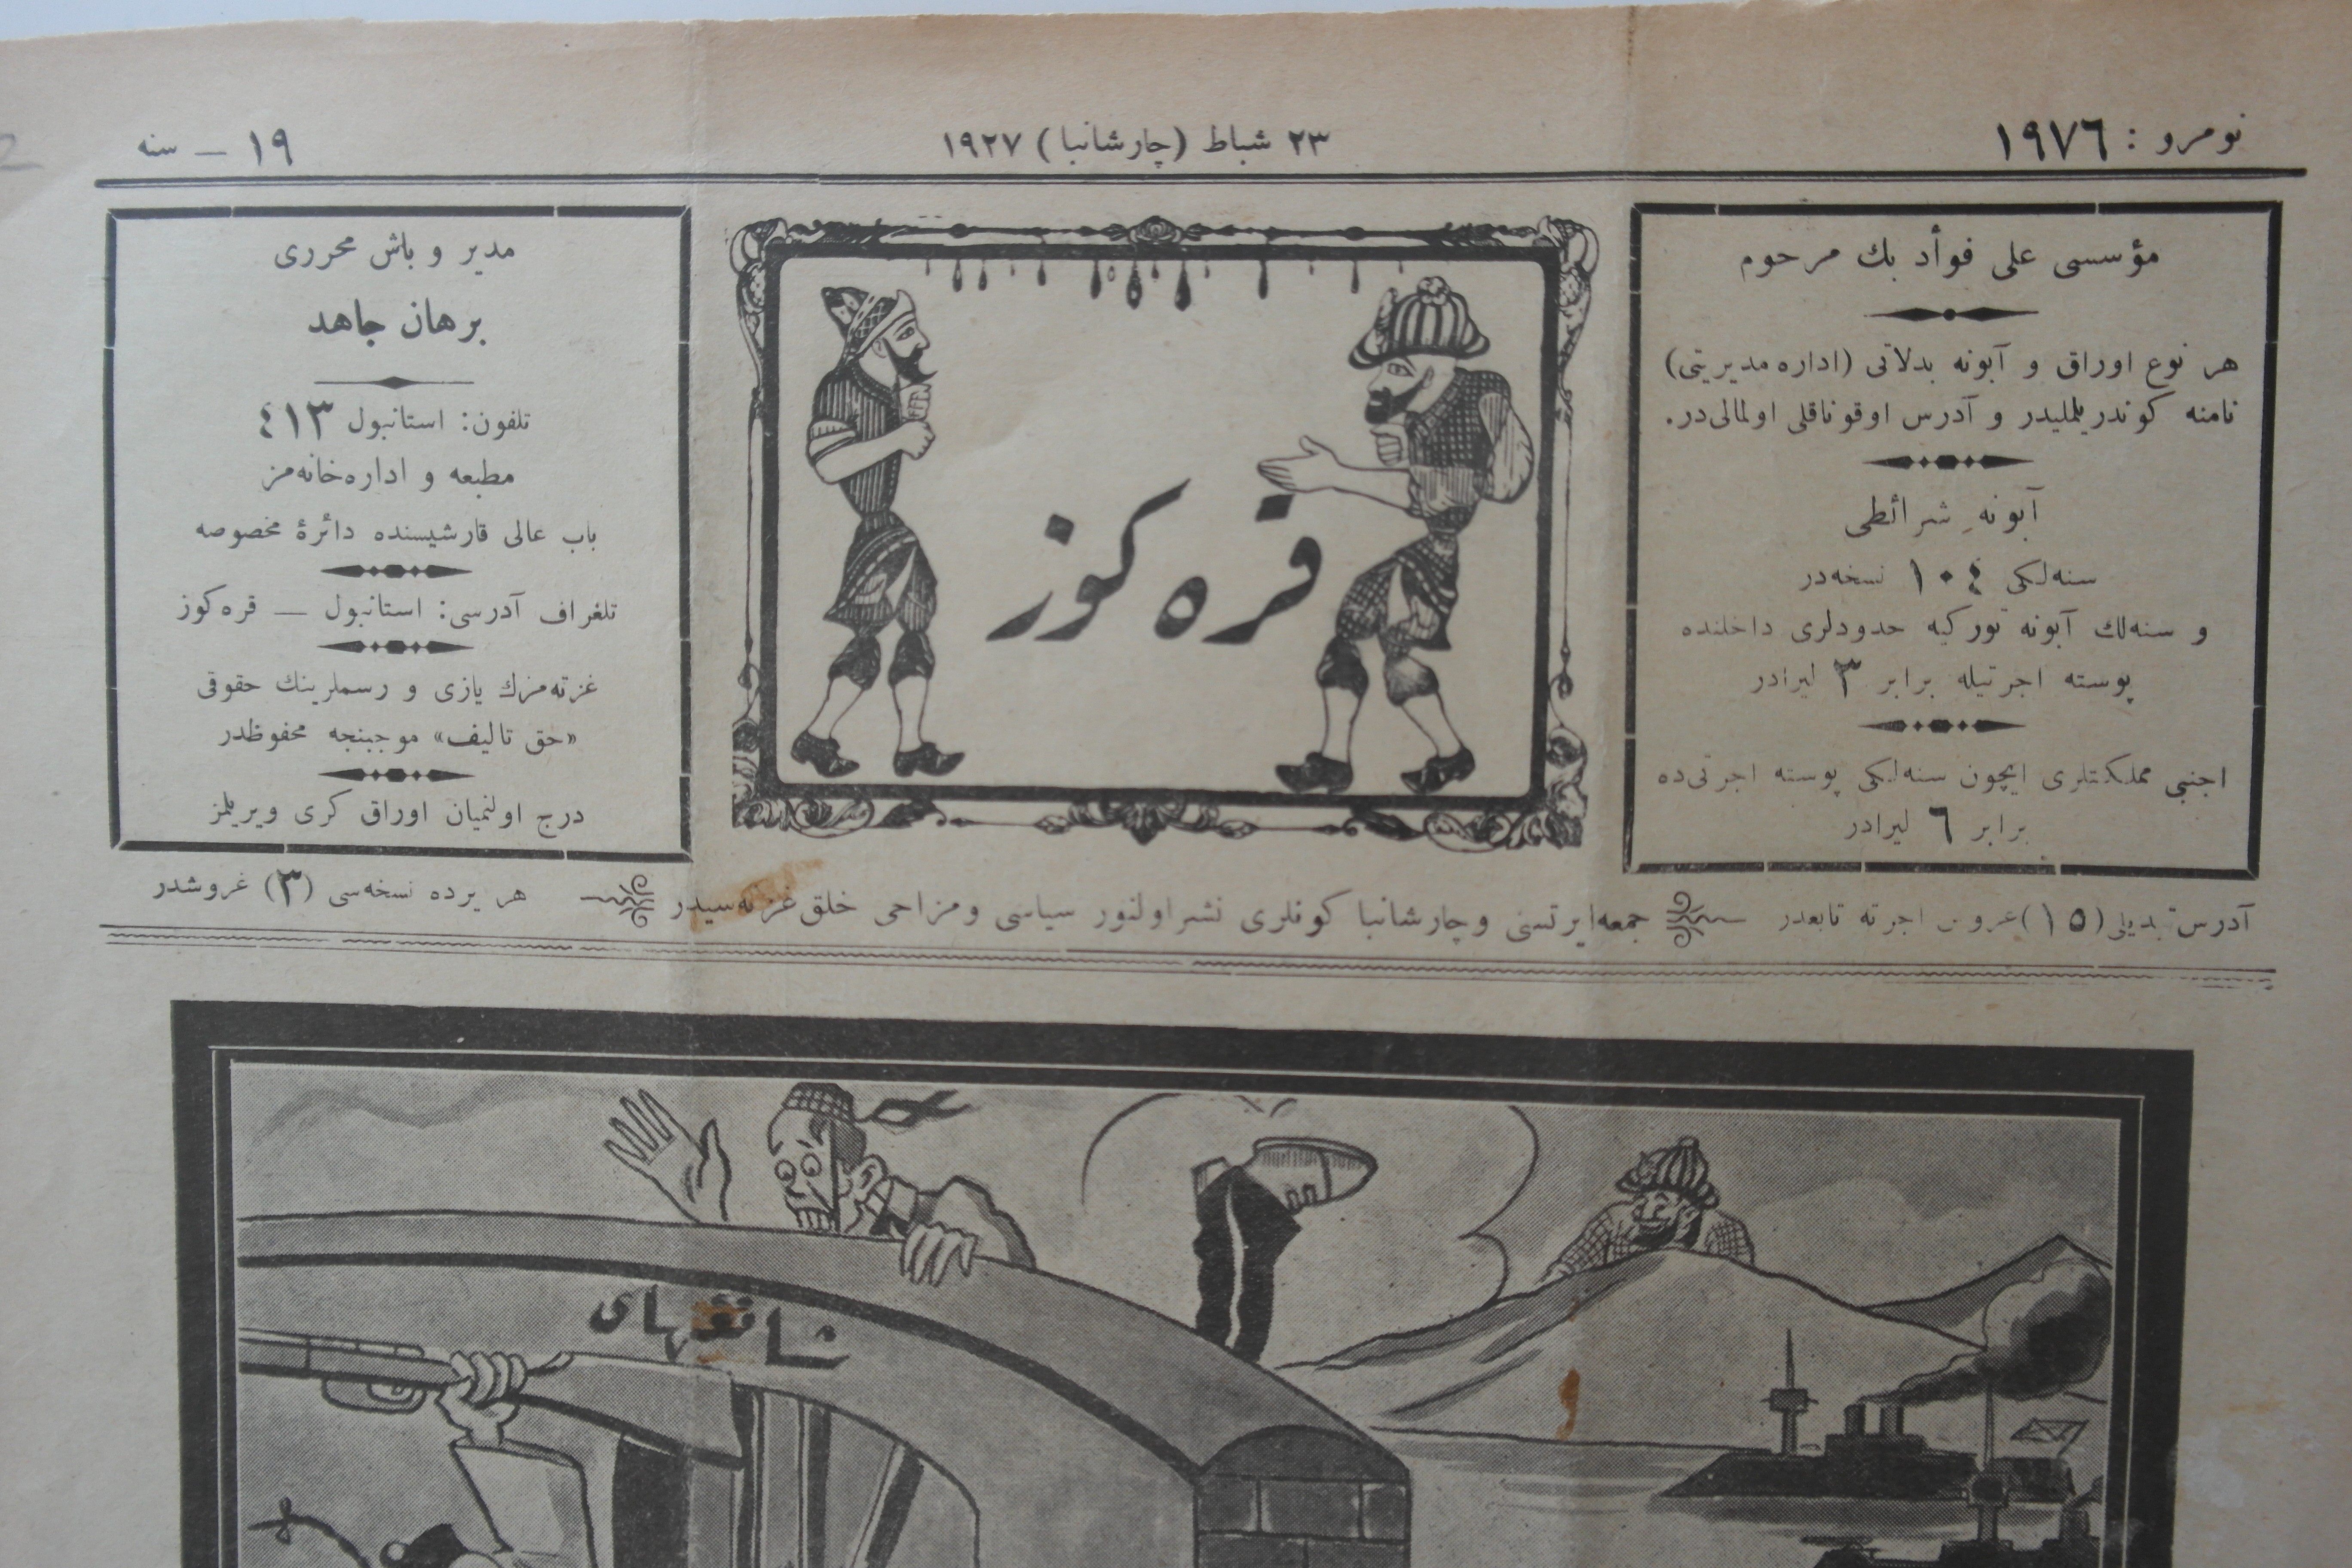 نومرو : ١٩٧٦
٢٣ شباط (چارشانبا) ١٩٢٧
١٩ — سنه
مؤسسی علی فوأد بك مرحوم
هر نوع اوراق و آبونه بدلاتی (اداره مدیریتی)
نامنه كوندریلملیدر و آدرس اوقوناقلی اولمالی‌در.
آبونه شرائطی
سنه‌لكی ١٠٤ نسخه‌در
و سنه‌لك آبونه توركیه حدودلری داخلنده
پوسته اجرتیله برابر ٣ لیرادر
اجنبی مملكتلری ایچون سنه‌لكی پوسته اجرتی‌ده
برابر ٦ لیرادر
قره كوز
مدیر و باش محرری
برهان جاهد
تلفون: استانبول ٤١٣
مطبعه و اداره‌خانه‌مز
باب عالی قارشیسنده دائرۀ مخصوصه
تلغراف آدرسی: استانبول — قره‌كوز
غزته‌مزك یازی و رسملرینك حقوقی
«حق تالیف» موجبنجه محفوظدر
درج اولنمیان اوراق كری ویریلمز
آدرس تبدیلی (١٥) غروش اجرته تابعدر
جمعه‌ایرتسی وچارشانبا كونلری نشر اولنور سیاسی ومزاحی خلق غزته‌سیدر
هر یرده نسخه‌سی (٣) غروشدر
شانغهای